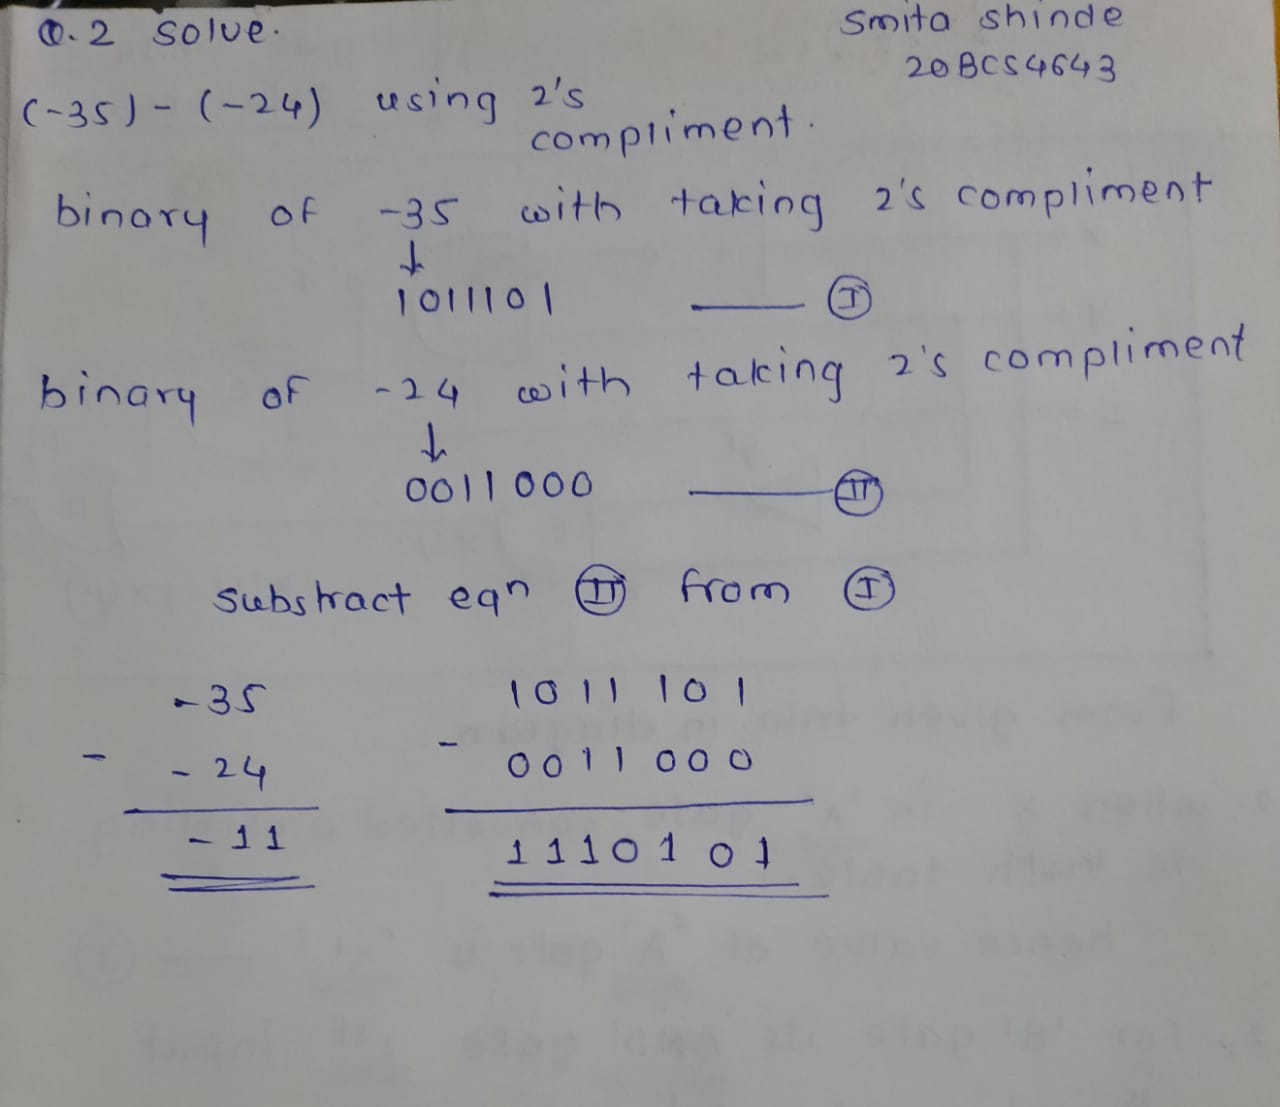 Q.2 Solve.
Smita Shinde
20BCS4643
(-35) - (-24) using 2's
compliment.
binary of -35 with taking 2's compliment
↓
1011101 —— (I)
binary of -24 with taking 2's compliment
↓
0011000 —— (II)
substract eqn (II) from (I)
-35 1011 101
- -24 - 0011 000
-11 1110101